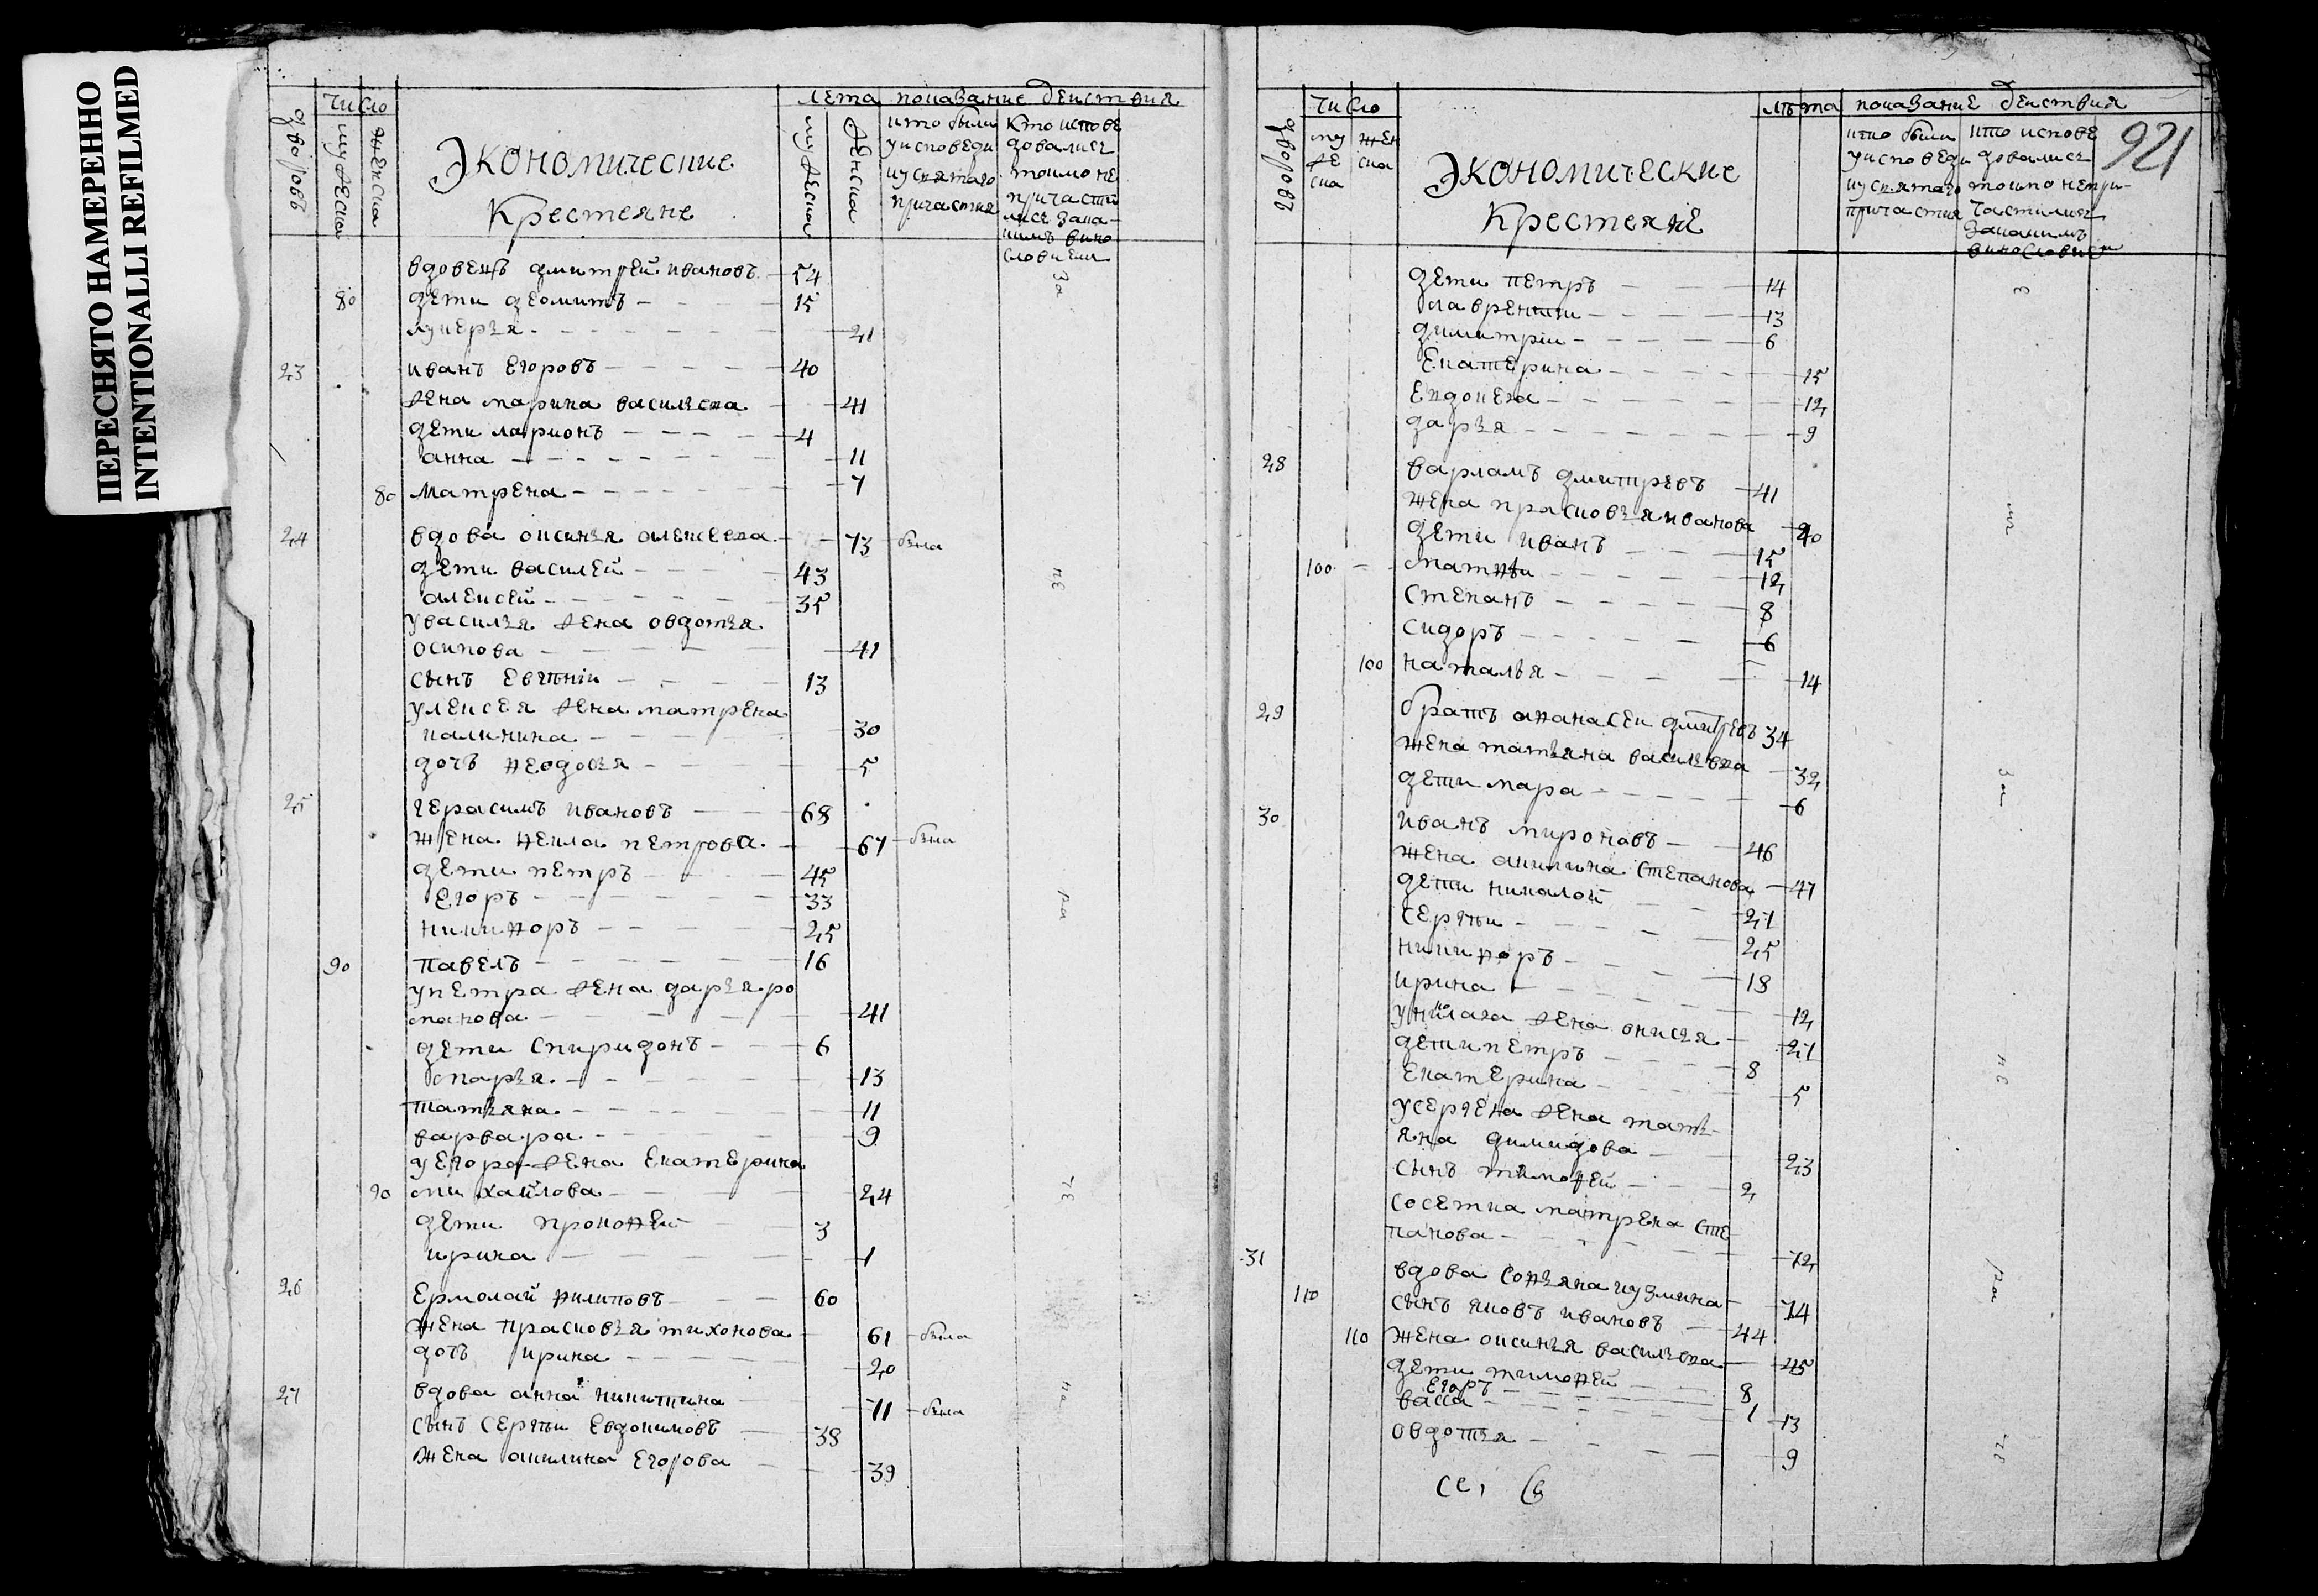 ПЕРЕСНЯТО НАМЕРЕННО
INTENTIONALLI REFILMED
дворовъ
число
мужеска
женска
Экономические
Крестеяне
лета
мужеска
женска
показание действия
кто были
уисповеди
иусвятаго
причастия
кто испове
довалися
токмо не
причасти
лися зака
кимъ вино
словием
вдовецъ дмитрей ивановъ 54
80 дети деомитъ 15
лукерья 21
23 иванъ Егоровъ 40
жена марина васильева 41
дети ларионъ 4
анна 11
80 матрена 7
24 вдова оксинья алексеева 73 была
дети василей 43
алексей 35
увасилья жена овдотья
осипова 41
сынъ евгѣніи 13
улексея жена матрена
калинина 30
дочь ѳеодосья 5
25 герасимъ ивановъ 68
жена ѳекла петрова 67 была
дети петръ 45
егоръ 33
никиѳоръ 25
90 павелъ 16
упетра жена дарья ро
манова 41
дети спиридонъ 6
марья 13
татьяна 11
варвара 9
уегора жена Екатерина
90 михайлова 24
дети прокоѳей 3
ирина 1
26 Ермолай ѳилиповъ 60
жена прасковья тихонова 61 была
дочь ирина 20
27 вдова анна никитина 71 была
сынъ сергѣи Евдокимовъ 38
жена акилина Егорова 39
за
не
ра
че
но
дворовъ
число
му
же
ска
жен
ска
Экономические
Крестеяне
лѣта
показание действия
921
кто были
уисповеди
иусвятаго
причастия
кто испове
довалися
токмо непри-
частилися
закакимъ
винословием
дети петръ 14
лаврентии 13
димитріи 6
Екатерина 15
Евдокея 12
дарья 9
28 варламъ дмитревъ 41
жена прасковья иванова 40
дети иванъ 15
100 матѳѣи 12
степанъ 8
сидоръ 6
100 наталья 14
29 братъ аѳанасеи дмитревъ 34
жена татьяна васильева 32
дети мара 6
30 иванъ мироновъ 46
жена акилина степанова 47
дети николай 27
сергѣи 25
никиѳоръ 18
ирина 12
униколая жена онисья 27
дети петръ 8
Екатерина 5
усергеиа жена тать
яна димидова 23
сынъ тимоѳей 2
сосетка матрена сте
панова 72
31 вдова соѳьяна кузмина 74
110 сынъ яковъ ивановъ 44
110 жена оксинья васильева 45
дети тимоѳей 8
Егоръ 1
васса 13
овдотья 9
за
не
ра